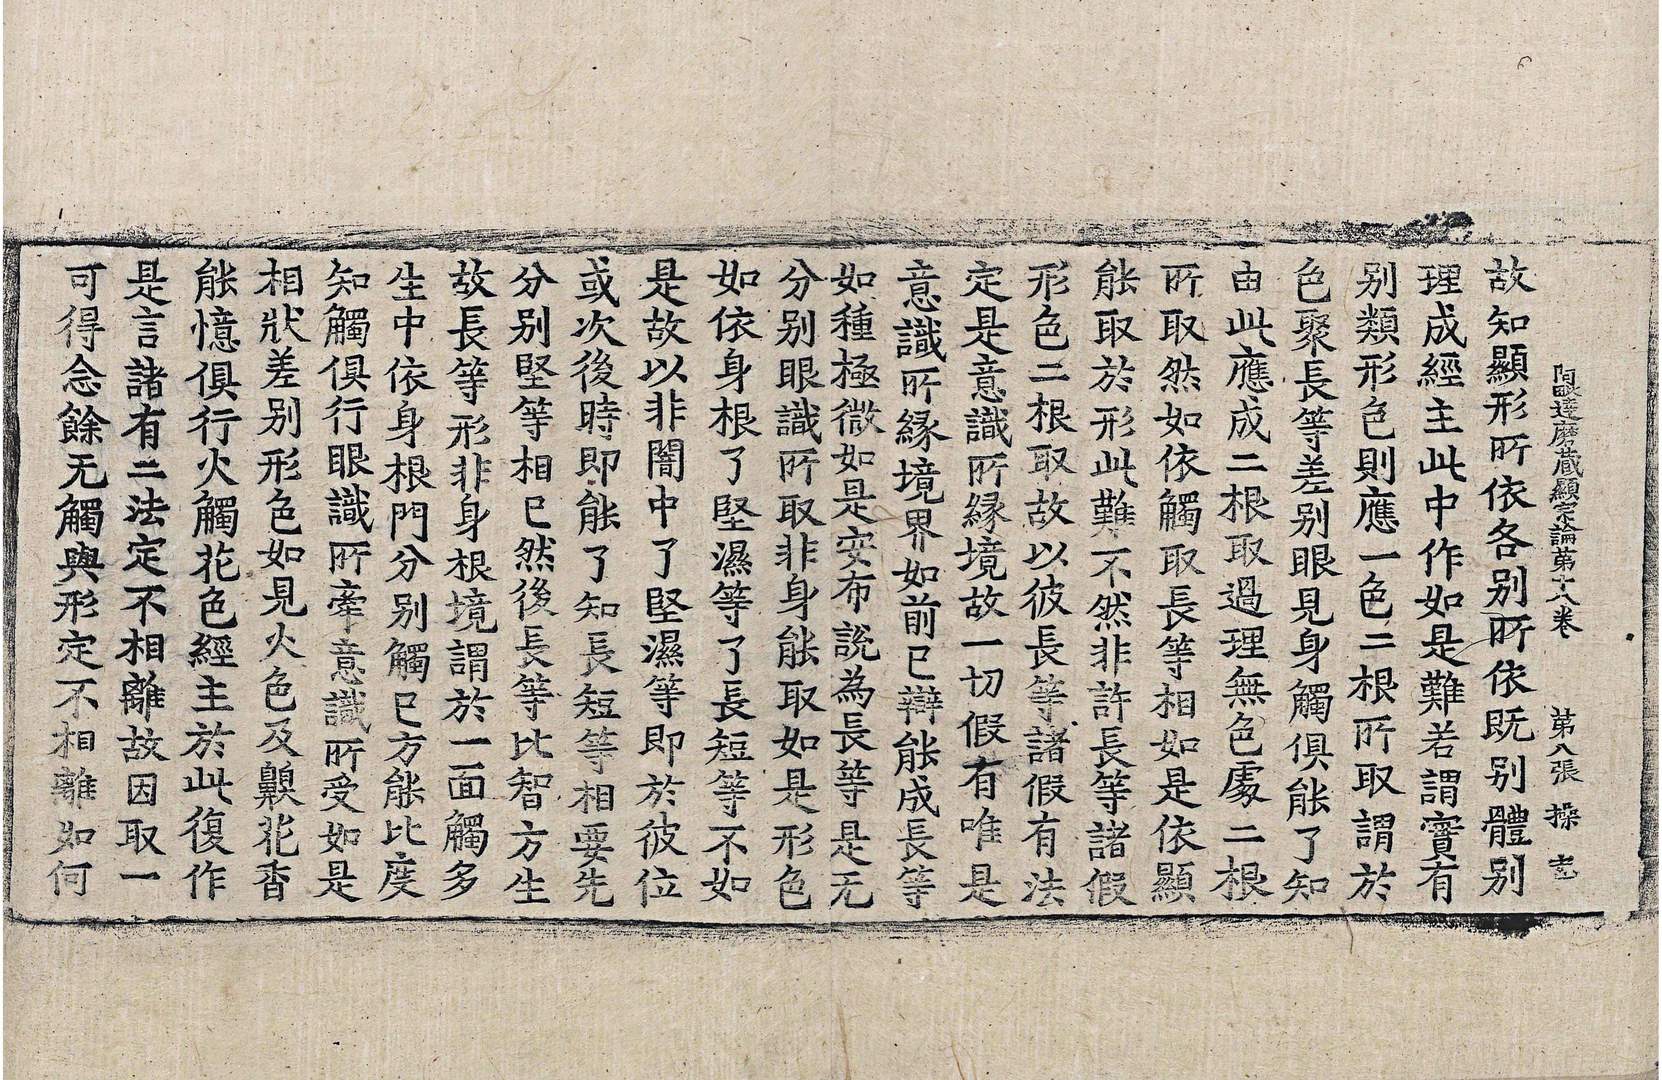 阿毗達磨藏顯宗論第十八卷 第八張 操
故知顯形所依各別所依既别體別
理成經主此中作如是難若謂實有
别類形色則應一色二根所取謂於
色聚長等差别眼見身觸俱能了知
由此應成二根取過理無色處二根
所取然如依觸取長等相如是依顯
能取於形此難不然非許長等諸假
形色二根取故以彼長等諸假有法
定是意識所緣境故一切假有唯是
意識所緣境界如前已辯能成長等
如種極微如是安布說為長等是无
分别眼識所取非身能取如是形色
如依身根了堅濕等了長短等不如
是故以非闇中了堅濕等即於彼位
或次後時即能了知長短等相要先
分别堅等相已然後長等比智方生
故長等形非身根境謂於一面觸多
生中依身根門分别觸已方能比度
知觸俱行眼識所牽意識所受如是
相狀差别形色如見火色及齅花香
能憶俱行火觸花色經主於此復作
是言諸有二法定不相離故因取一
可得念餘无觸與形定不相離如何